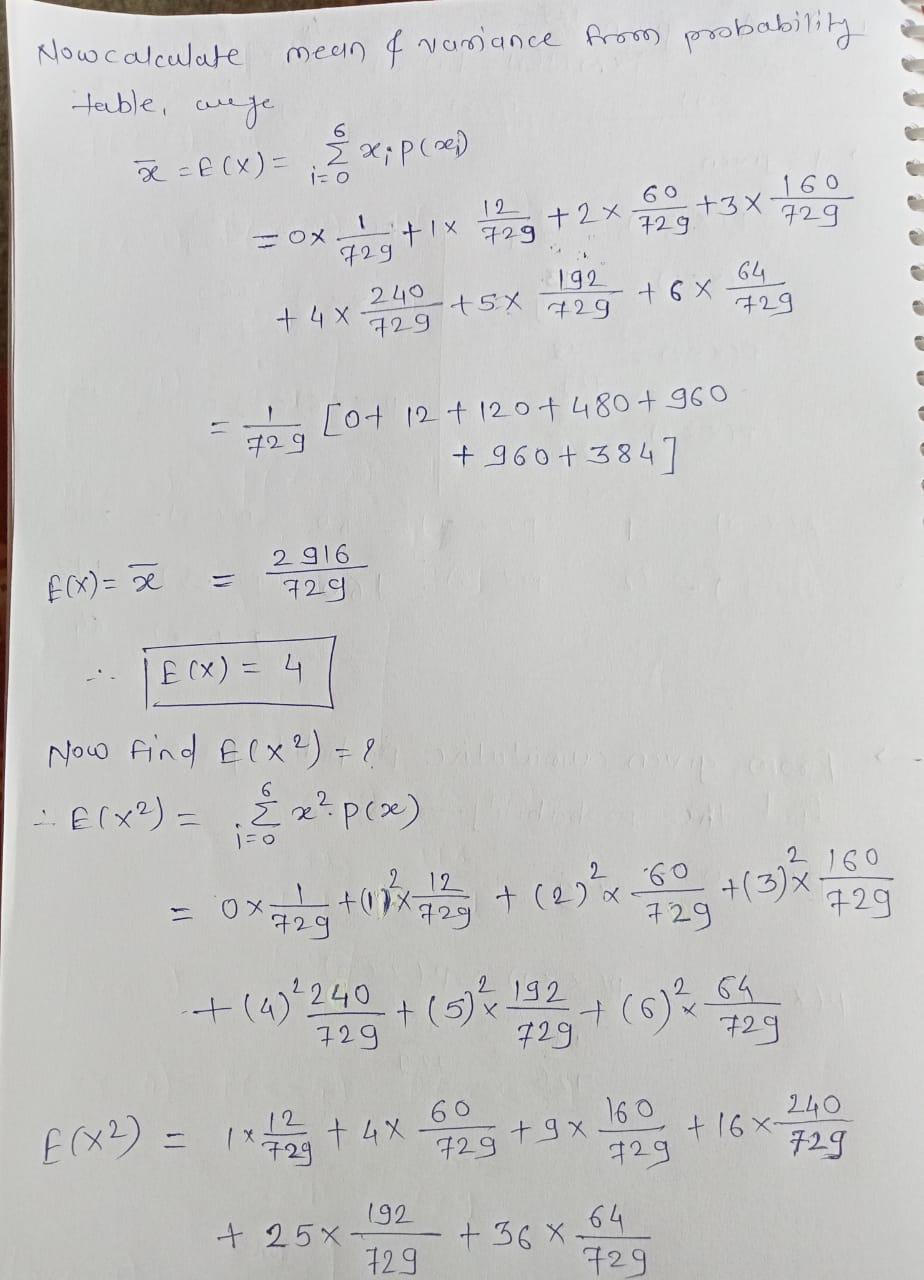 Now calculate mean & variance from probability
table, we ge
x̄ = E(X) = Σ_{i=0}^{6} xᵢ P(xᵢ)
= 0 × 1/729 + 1 × 12/729 + 2 × 60/729 + 3 × 160/729
+ 4 × 240/729 + 5 × 192/729 + 6 × 64/729
= 1/729 [0 + 12 + 120 + 480 + 960
+ 960 + 384]
E(X) = x̄ = 2916/729
∴ E(X) = 4
Now find E(X²) = ?
∴ E(X²) = Σ_{i=0}^{6} x². P(x)
= 0 × 1/729 + (1)² × 12/729 + (2)² × 60/729 + (3)² × 160/729
+ (4)² 240/729 + (5)² × 192/729 + (6)² × 64/729
E(X²) = 1 × 12/729 + 4 × 60/729 + 9 × 160/729 + 16 × 240/729
+ 25 × 192/729 + 36 × 64/729